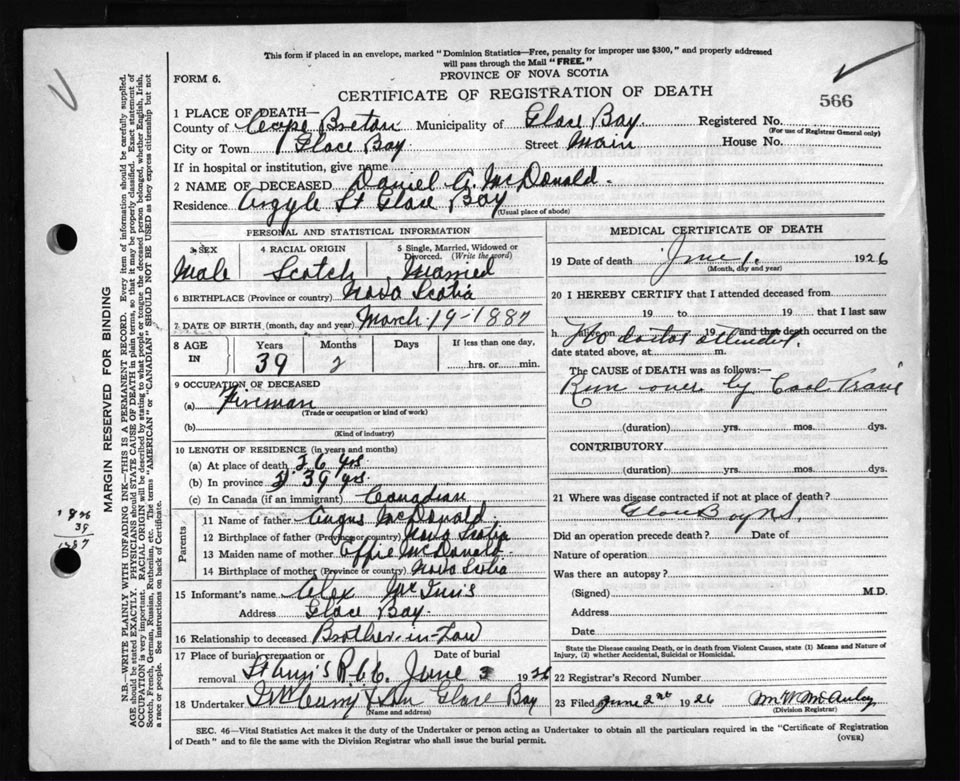 This form if placed in an envelope, marked "Dominion Statistics—Free, penalty for improper use $300," and properly addressed
will pass through the Mail "FREE."
FORM 6.
PROVINCE OF NOVA SCOTIA
CERTIFICATE OF REGISTRATION OF DEATH
566
1 PLACE OF DEATH—
County of Cape Breton Municipality of Glace Bay Registered No.
(For use of Registrar General only)
City or Town Glace Bay Street Main House No.
If in hospital or institution, give name
2 NAME OF DECEASED Daniel A. McDonald.
Residence Argyle St Glace Bay
(Usual place of abode)
PERSONAL AND STATISTICAL INFORMATION
3 SEX 4 RACIAL ORIGIN 5 Single, Married, Widowed or Divorced. (Write the word)
Male Scotch Married
6 BIRTHPLACE (Province or country) Nova Scotia
7 DATE OF BIRTH (month, day and year) March-19-1887
8 AGE IN Years Months Days If less than one day,
39 2 hrs. or min.
9 OCCUPATION OF DECEASED
(a) Fireman
(Trade or occupation or kind of work)
(b)
(Kind of industry)
10 LENGTH OF RESIDENCE (in years and months)
(a) At place of death 36 yrs.
(b) In province 39 yrs.
(c) In Canada (if an immigrant) Canadian
Parents
11 Name of father Angus McDonald.
12 Birthplace of father (Province or country) Nova Scotia
13 Maiden name of mother Effie McDonald
14 Birthplace of mother (Province or country) Nova Scotia
15 Informant's name Alex McInnis
Address Glace Bay.
16 Relationship to deceased Brother-in-Law
17 Place of burial, cremation or removal Date of burial
St Ann's June 3 1926
18 Undertaker Glace Bay
(Name and address)
MEDICAL CERTIFICATE OF DEATH
19 Date of death June 1. 1926
(Month, day and year)
20 I HEREBY CERTIFY that I attended deceased from
19 to 19 that I last saw
h alive on 19 and that death occurred on the
No doctor attended.
date stated above, at m.
The CAUSE of DEATH was as follows:—
Run over by Coal Train
(duration) yrs. mos. dys.
CONTRIBUTORY.
(duration) yrs. mos. dys.
21 Where was disease contracted if not at place of death?
Glace Bay NS.
Did an operation precede death? Date of
Nature of operation
Was there an autopsy?
(Signed) M.D.
Address
Date
State the Disease causing Death, or in death from Violent Causes, state (1) Means and Nature of
Injury, (2) whether Accidental, Suicidal or Homicidal.
22 Registrar's Record Number
23 Filed June 2nd 1926 M W McAulay
(Division Registrar)
SEC. 46—Vital Statistics Act makes it the duty of the Undertaker or person acting as Undertaker to obtain all the particulars required in the "Certificate of Registration
of Death" and to file the same with the Division Registrar who shall issue the burial permit.
(OVER)
MARGIN RESERVED FOR BINDING
N.B.—WRITE PLAINLY WITH UNFADING INK—THIS IS A PERMANENT RECORD. Every item of information should be carefully supplied.
AGE should be stated EXACTLY. PHYSICIANS should STATE CAUSE OF DEATH in plain terms, so that it may be properly classified. Exact statement of
OCCUPATION is very important. RACIAL ORIGIN will be described by stating to what people or tongue the deceased person belonged, whether English, Irish,
Scotch, French, German, Russian, Ruthenian, etc. The terms "AMERICAN" or "CANADIAN" SHOULD NOT BE USED as they express citizenship but not
a race or people. See instructions on back of Certificate.
1926
39
1887